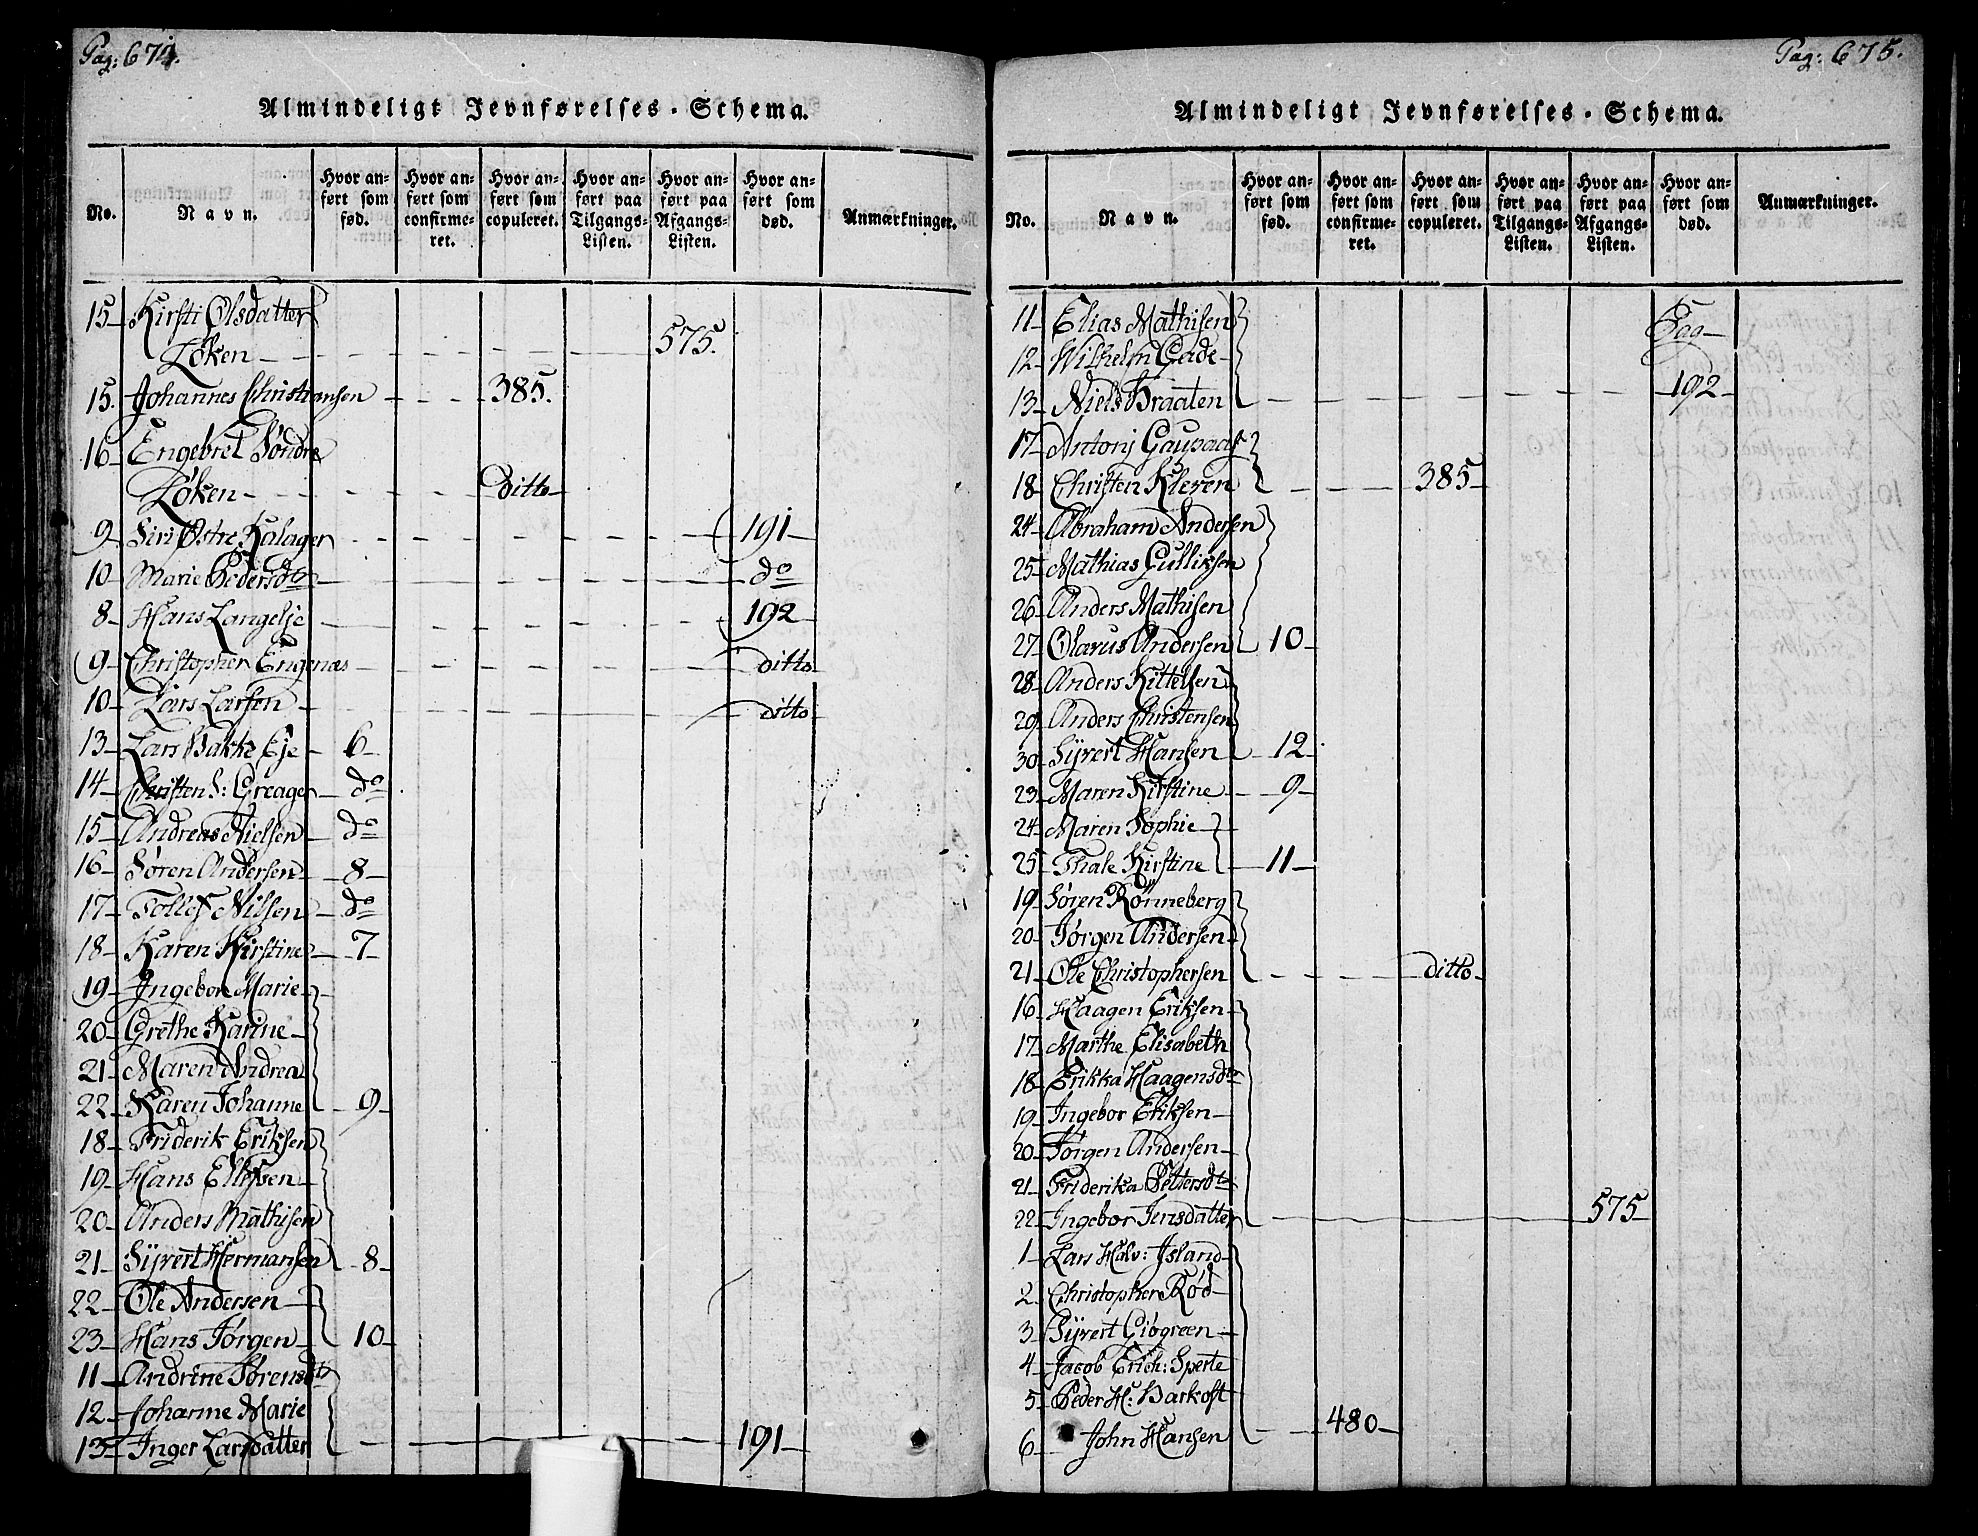 Pag: 674.
Almindeligt Jevnførelses-Schema.
No.
Navn.
Hvor anført som fød.
Hvor anført som confirmeret.
Hvor anført som copuleret.
Hvor anført paa Tilgangs-Listen.
Hvor anført paa Afgangs-Listen.
Hvor anført som død.
Anmærkninger.
15 Kirsti Olsdatter
Løken 575.
15. Johannes Christiansen 385.
16 Engebret Søndre
Løken Ditto
9 Siri Østre Kalager 191
10 Marie Pedersdtr do
8 Hans Langelje 192
9 Christopher Engenæs ditto
10 Lars Larsen ditto
13 Lars Bakke Eje 6
14 Christen S: Greager do
15 Andreas Nielsen do
16 Søren Andersen 8
17 Tollef Nilsen do
18 Karen Kirstine 7
19 Ingebor Marie
20 Grethe Karine
21 Maren Andrea
22 Karen Johanne 9
18 Friderik Eriksen
19 Hans Ellefsen
20 Anders Mathisen
21 Syvert Hermansen 8
22 Ole Andersen
23 Hans Jørgen 10
11 Andrine Sørensdtr
12 Johanne Marie
13 Inger Larsdatter 191
Pag: 675.
Almindeligt Jevnførelses-Schema.
No.
Navn.
Hvor anført som fød.
Hvor anført som confirmeret.
Hvor anført som copuleret.
Hvor anført paa Tilgangs-Listen.
Hvor anført paa Afgangs-Listen.
Hvor anført som død.
Anmærkninger.
11 Elias Mathisen Pag
12 Wilhelm Gade
13 Niels Braaten 192
17 Antonj Gaupaas
18 Christen Kleven 385
24 Abraham Andersen
25 Mathias Gulliksen
26 Anders Mathisen
27 Olavus Andersen 10
28 Anders Kittelsen
29 Anders Christensen
30 Syvert Hansen 12
23 Maren Kirstine 9
24 Maren Sophie
25 Thale Kirstine 11
19 Søren Rönneberg
20 Jørgen Andersen
21 Ole Christophersen ditto
16 Haagen Eriksen
17 Marthe Elisabeth
18 Erikka Haagensdtr
19 Ingebor Eriksen
20 Jørgen Andersen
21 Friderika Pettersdtr
22 Ingebor Jensdatter 575
1 Lars Halv: Island
2 Christopher Rød
3 Syvert Giøgreen
4 Jacob Erich: Sperte
5 Peder H: Barkost
6 John Hansen 480